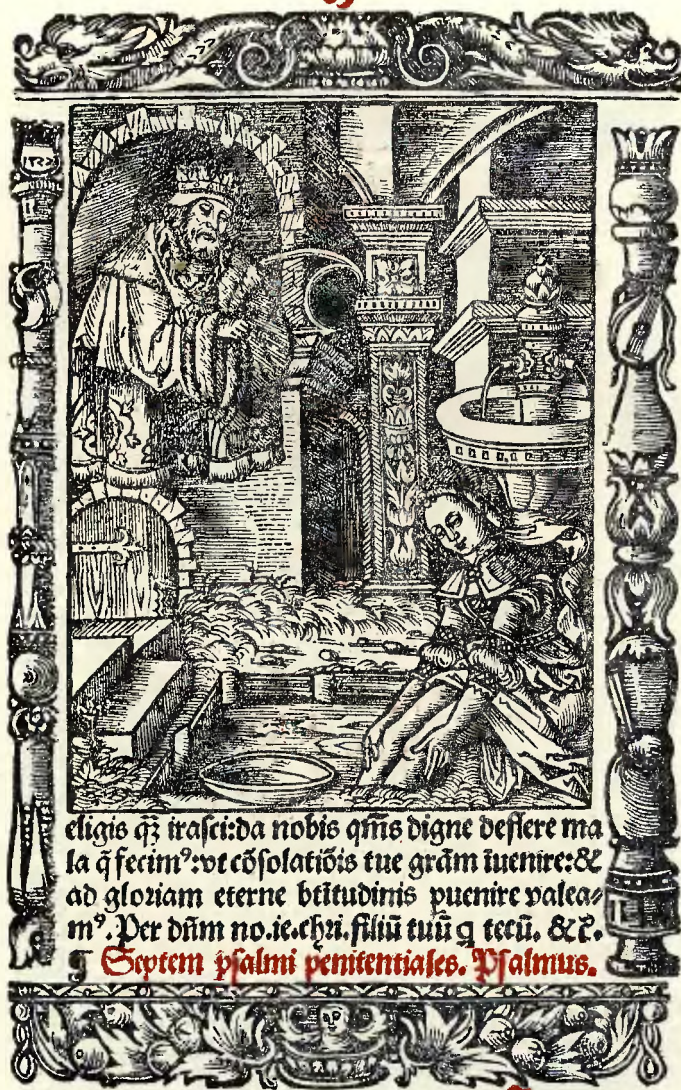 1522
eligis qꝫ iraſci:da nobis q̄ms digne deflere ma
la q̄ fecimꝰ:vt cōſolatiōis tue grām īuenire:&
ad gloriam eterne btītudinis puenire valea⸗
mꝰ. Per dn̄m no.ie.chri.filiū tuū q tecū. &č.
¶ Septem pſalmi penitentiales. Pſalmus.